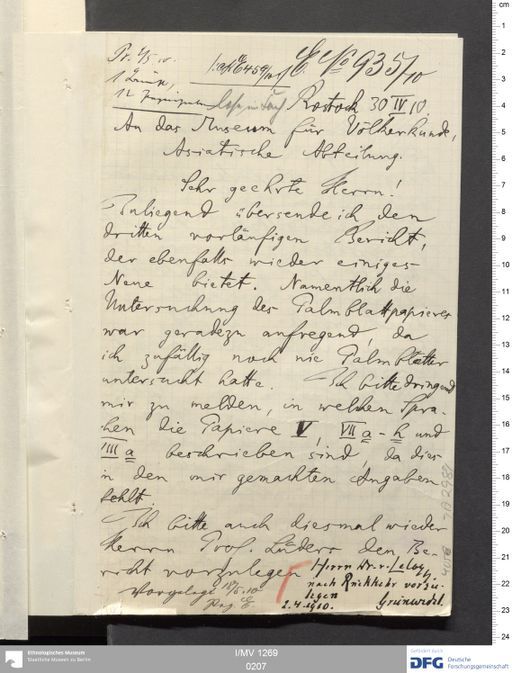 Pr. 2/5 10.
E No 935/10
Rostock 30 IV 10
An das Museum für Völkerkunde,
Asiatische Abteilung.
Sehr geehrte Herrn!
Anliegend übersende ich den
dritten vorläufigen Bericht,
der ebenfalls wieder einiges
Neue bietet. Namentlich die
Untersuchung des Palmblattpapieres
war geradezu aufregend, da
ich zufällig noch nie Palmblätter
untersucht hatte. Ich bitte dringend
mir zu melden, in welchen Spra-
chen die Papiere V, VII a - h und
IIII a beschrieben sind, da dies
in den mir gemachten Angaben
fehlt.
Ich bitte auch diesmal wieder
Herrn Prof. Lüders den Be-
richt vorzulegen
Herrn Dr. v. LeCoq
nach Rückkehr vorzu-
legen
2.4.1910. Grünwedel.
Vorgelegt
Ethnologisches Museum
Staatliche Museen zu Berlin
I/MV 1269
0207
gefördert durch
DFG Deutsche
Forschungsgemeinschaft
cm
1
2
3
4
5
6
7
8
9
10
11
12
13
14
15
16
17
18
19
20
21
22
23
24